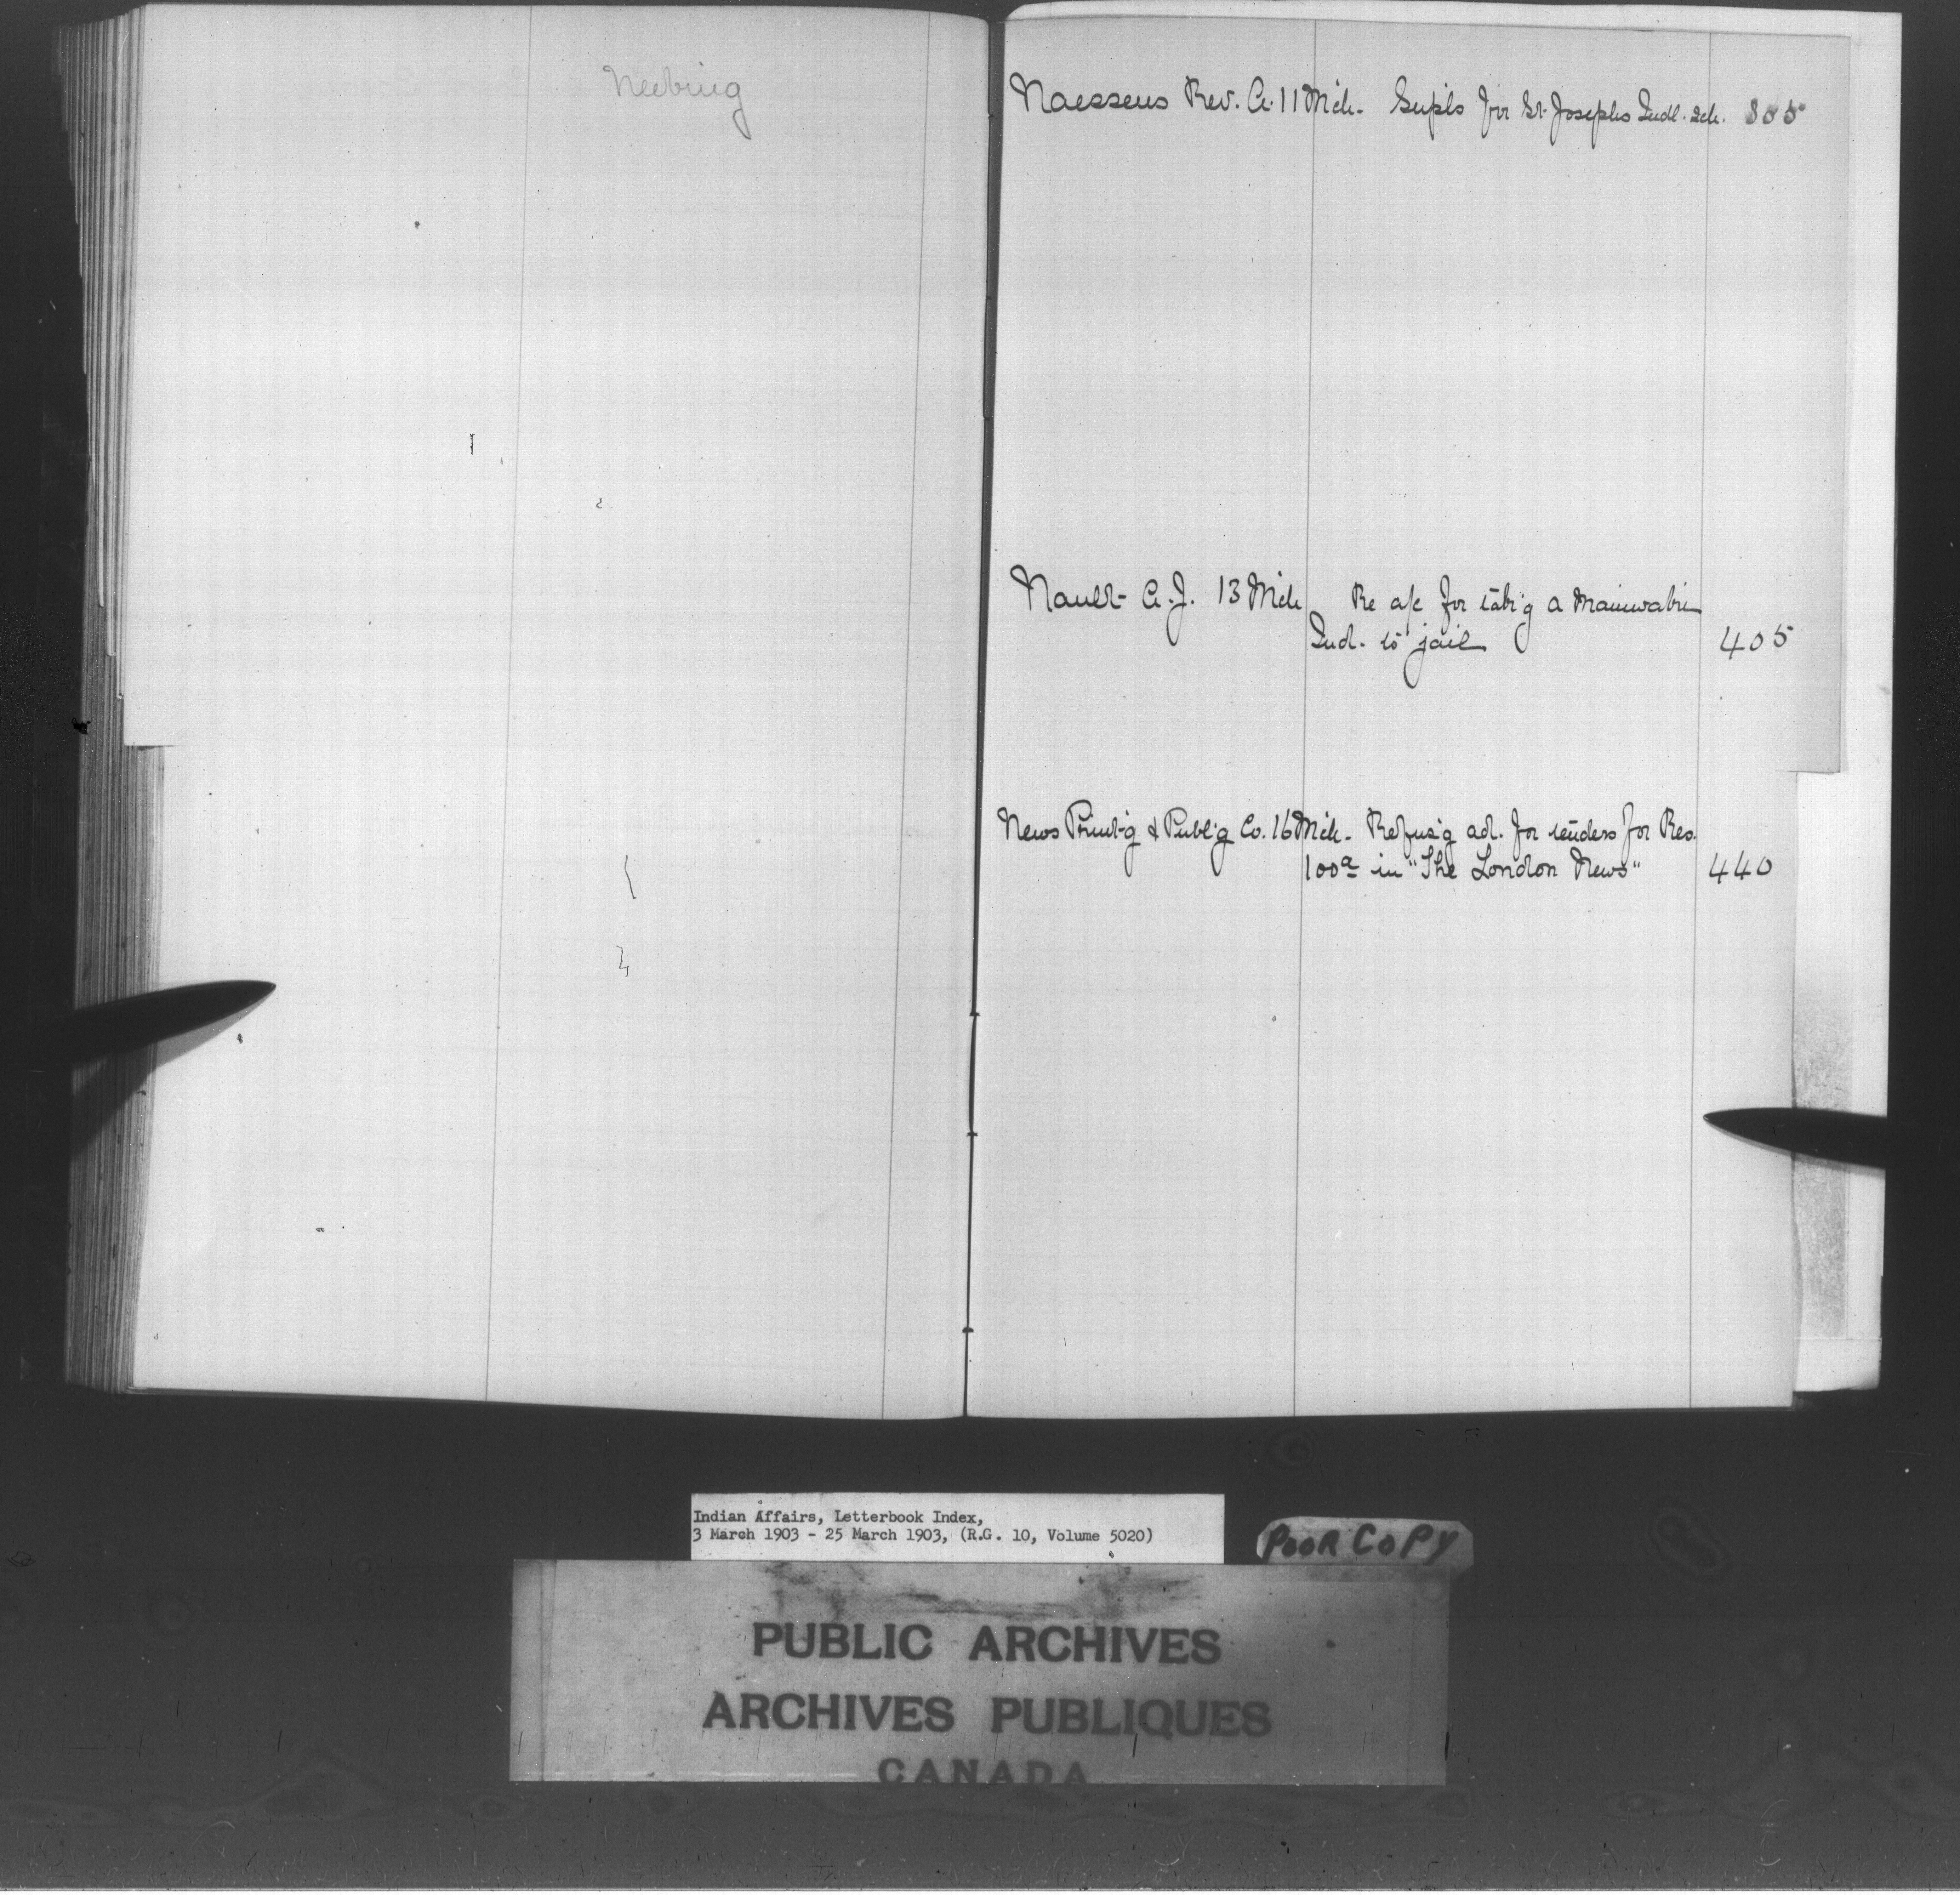 Neebing
Naessens Rev. A. 11 Mch. Supls for St. Josephs Indl. Sch. 355
Nault A.J. 13 Mch Re a/c for tak'g a
Ind. to jail 405
News Print'g & Publ'g Co. 16 Mch. Refus'g ad. for tenders for Res.
in "The London News" 440
Indian Affairs, Letterbook Index,
3 March 1903 - 25 March 1903, (R.G. 10, Volume 5020)
POOR COPY
PUBLIC ARCHIVES
ARCHIVES PUBLIQUES
CANADA